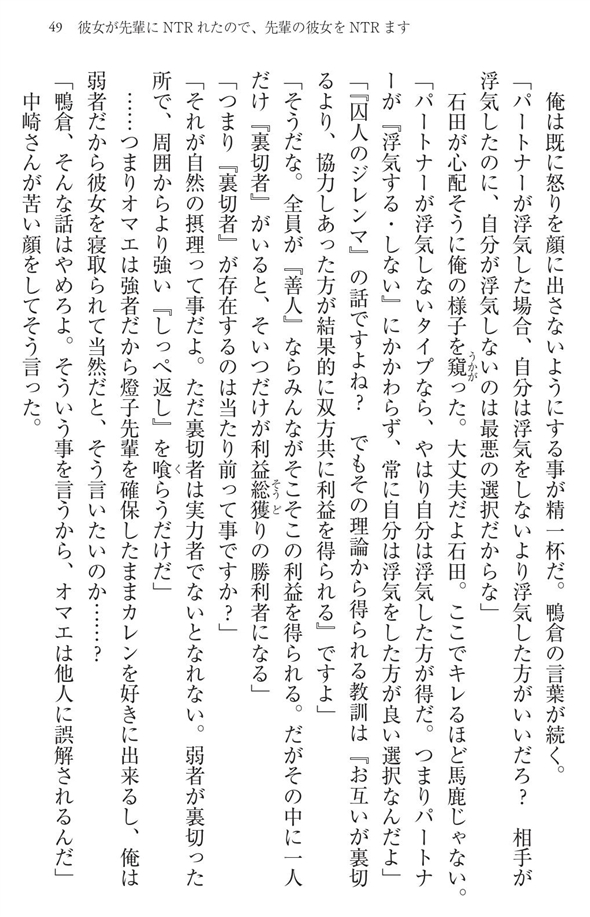 49　彼女が先輩にNTRれたので、先輩の彼女をNTRます
　俺は既に怒りを顔に出さないようにする事が精一杯だ。鴨倉の言葉が続く。
「パートナーが浮気した場合、自分は浮気をしないより浮気した方がいいだろ？　相手が
浮気したのに、自分が浮気しないのは最悪の選択だからな」
　石田が心配そうに俺の様子を窺った。大丈夫だよ石田。ここでキレるほど馬鹿じゃない。
「パートナーが浮気しないタイプなら、やはり自分は浮気した方が得だ。つまりパートナ
ーが『浮気する・しない』にかかわらず、常に自分は浮気をした方が良い選択なんだよ」
「『囚人のジレンマ』の話ですよね？　でもその理論から得られる教訓は『お互いが裏切
るより、協力しあった方が結果的に双方共に利益を得られる』ですよ」
「そうだな。全員が『善人』ならみんながそこそこの利益を得られる。だがその中に一人
だけ『裏切者』がいると、そいつだけが利益総獲りの勝利者になる」
「つまり『裏切者』が存在するのは当たり前って事ですか？」
「それが自然の摂理って事だよ。ただ裏切者は実力者でないとなれない。弱者が裏切った
所で、周囲からより強い『しっぺ返し』を喰らうだけだ」
　……つまりオマエは強者だから燈子先輩を確保したままカレンを好きに出来るし、俺は
弱者だから彼女を寝取られて当然だと、そう言いたいのか……？
「鴨倉、そんな話はやめろよ。そういう事を言うから、オマエは他人に誤解されるんだ」
　中崎さんが苦い顔をしてそう言った。